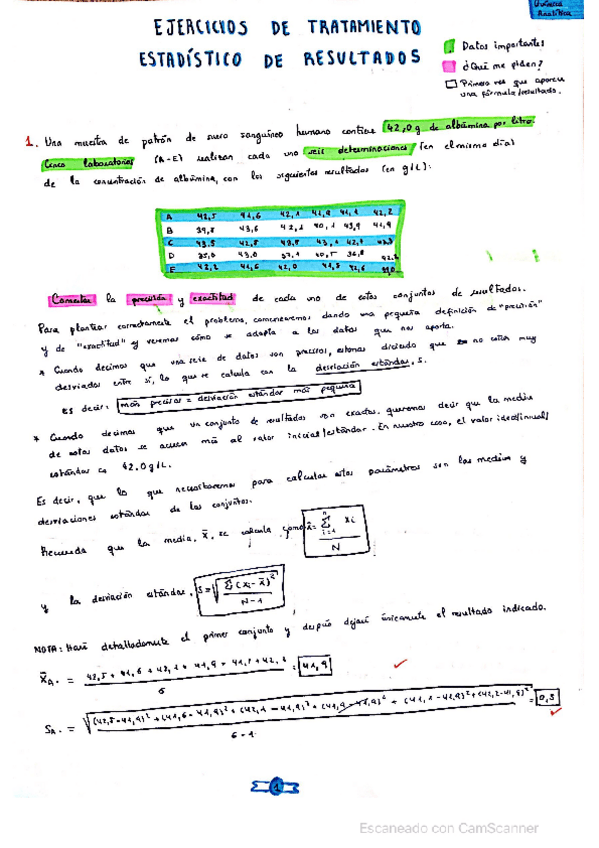 Química
Analítica
EJERCICIOS DE TRATAMIENTO
ESTADÍSTICO DE RESULTADOS
Datos importantes
¿Qué me piden?
Primera vez que aparece
una fórmula/resultado.
1. Una muestra de patrón de suero sanguíneo humano contiene 42,0 g de albúmina por litro.
Cinco laboratorios (A-E) realizan cada uno seis determinaciones (en el mismo día)
de la concentración de albúmina, con los siguientes resultados (en g/L):
A 42,5 41,6 42,1 41,9 41,1 42,2
B 39,8 43,6 42,1 40,1 43,9 41,9
C 43,5 42,8 43,8 43,1 42,7
D 35,0 43,0 37,1 40,5 36,8 42,2
E 42,2 41,6 42,0 41,8 42,6 39,0
Comentar la precisión y exactitud de cada uno de estos conjuntos de resultados.
Para plantear correctamente el problema, comenzaremos dando una pequeña definición de "precisión"
y de "exactitud" y veremos cómo se adapta a los datos que nos aporta.
* Cuando decimos que una serie de datos son precisos, estamos diciendo que no están muy
desviados entre sí, lo que se calcula con la desviación estándar, s.
Es decir: más preciso = desviación estándar más pequeña
* Cuando decimos que un conjunto de resultados son exactos, queremos decir que la media
de estos datos se acercan más al valor inicial/estándar. En nuestro caso, el valor ideal/inicial/
estándar es 42,0 g/L.
Es decir, que lo que necesitaremos para calcular estos parámetros son las medias y
desviaciones estándar de los conjuntos.
Recuerda que la media, x̄, se calcula como x̄ = Σ xi / N
y la desviación estándar, s = √ Σ (xi - x̄)² / N-1
NOTA: Haré detalladamente el primer conjunto y después dejaré únicamente el resultado indicado.
x̄A = 42,5 + 41,6 + 42,1 + 41,9 + 41,1 + 42,2 / 6 = 41,9
SA = √ (42,5-41,9)² + (41,6-41,9)² + (42,1-41,9)² + (41,9-41,9)² + (41,1-41,9)² + (42,2-41,9)² / 6-1 = 0,5
1
Escaneado con CamScanner